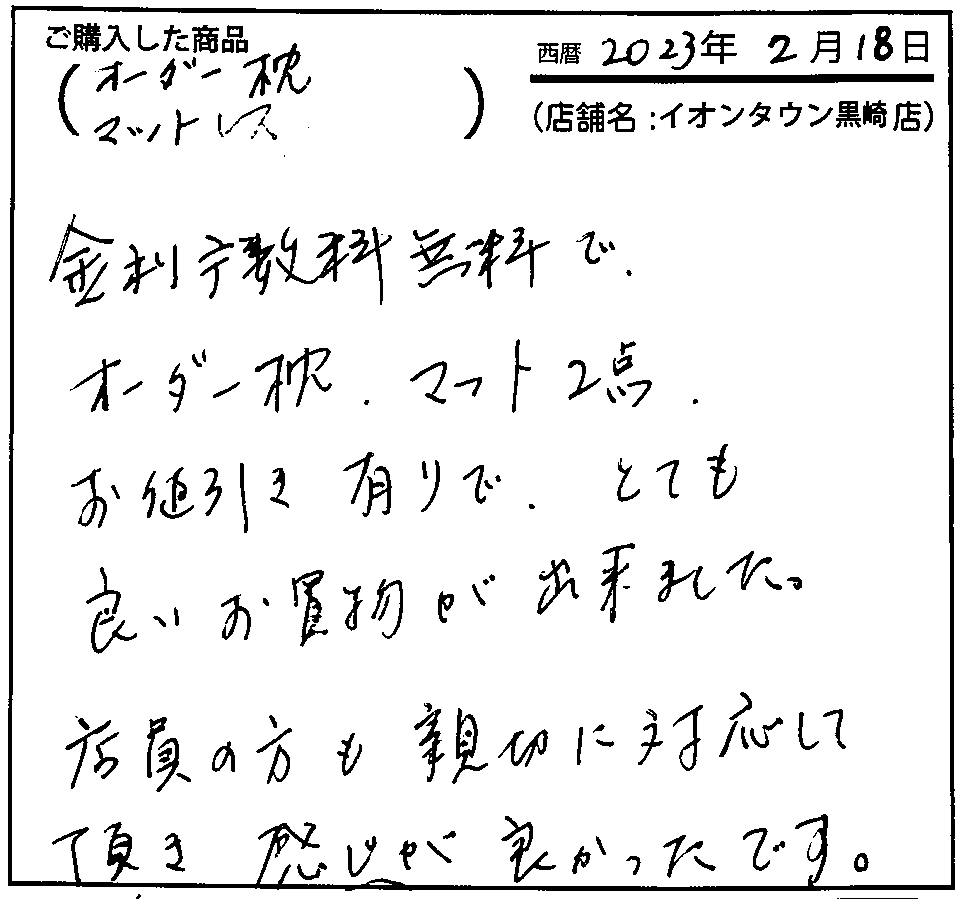 ご購入した商品
西暦 2023年 2月18日
(オーダー枕
マットレス)
(店舗名:イオンタウン黒崎店)
金利手数料無料で、
オーダー枕、マット2点、
お値引き有りで、とても
良いお買物が出来ました。
店員の方も親切に対応して
頂き 感じが良かったです。